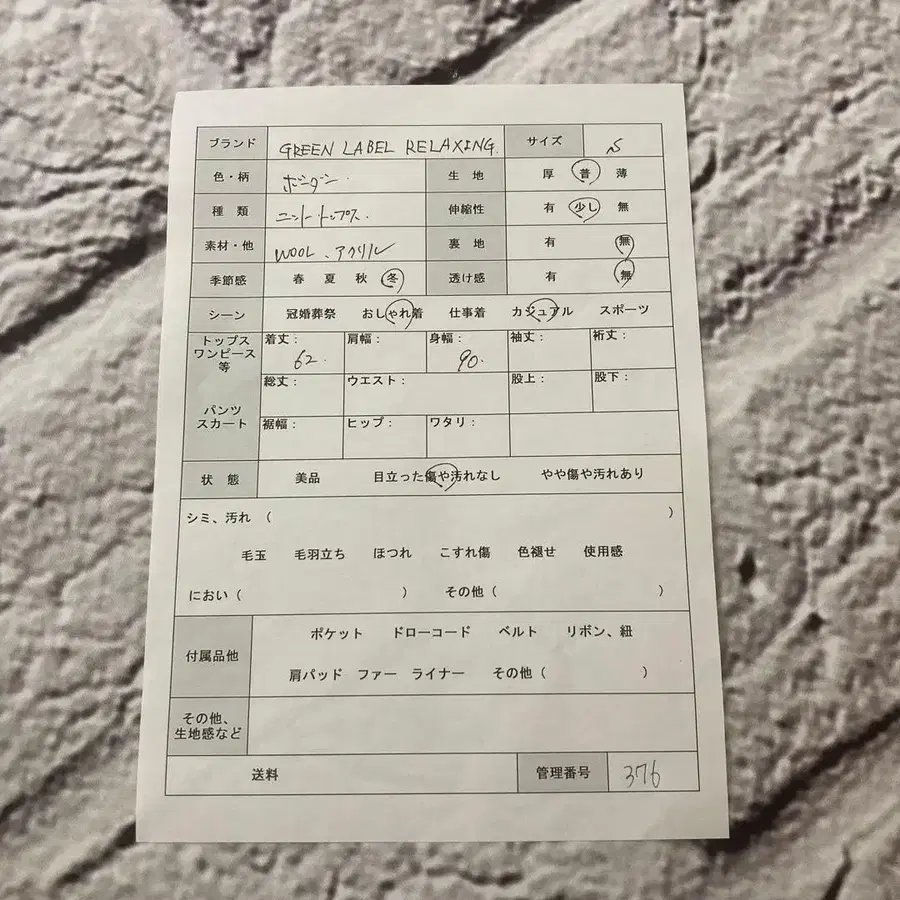 ブランド GREEN LABEL RELAXING. サイズ S
色・柄 ボーダー. 生 地 厚 普 薄
種 類 ニット・トップス. 伸縮性 有 少し 無
素材・他 WOOL、アクリル 裏 地 有 無
季節感 春 夏 秋 冬 透け感 有 無
シーン 冠婚葬祭 おしゃれ着 仕事着 カジュアル スポーツ
トップス
ワンピース
等
着丈: 62. 肩幅: 身幅: 90. 袖丈: 裄丈:
パンツ
スカート
総丈: ウエスト: 股上: 股下:
裾幅: ヒップ: ワタリ:
状 態 美品 目立った傷や汚れなし やや傷や汚れあり
シミ、汚れ ( )
毛玉 毛羽立ち ほつれ こすれ傷 色褪せ 使用感
におい ( ) その他 ( )
付属品他 ポケット ドローコード ベルト リボン、紐
肩パッド ファー ライナー その他 ( )
その他、
生地感など
送料 管理番号 376